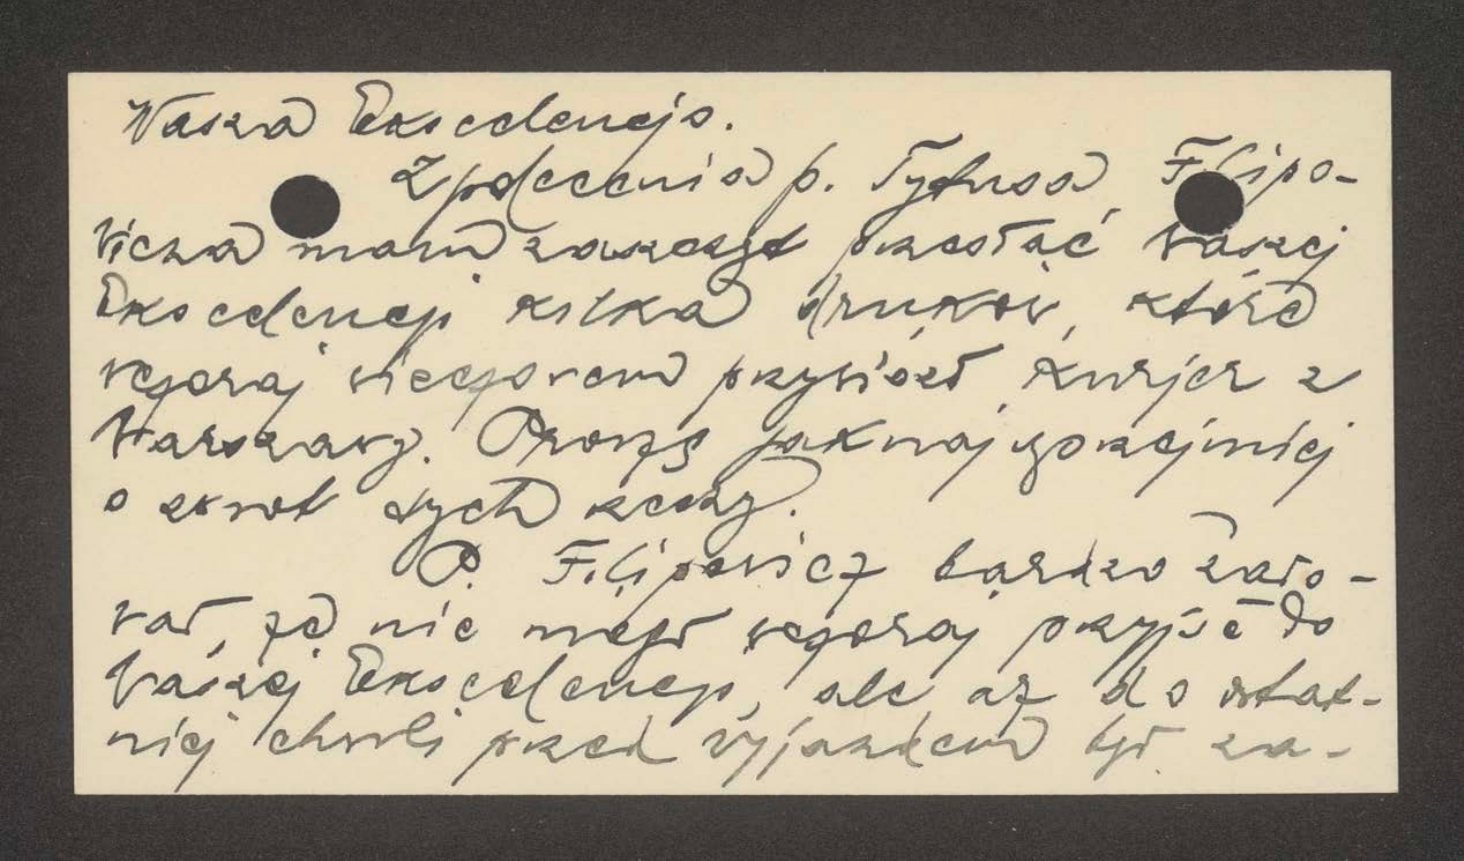 Wasza Ekscelencjo.
Z polecenia p. Tytusa Filipo-
wicza mam zaszczyt przesłać Waszej
Ekscelencji kilka druków, które
wczoraj wieczorem przywiózł kurjer z
Warszawy. Proszę jaknajuprzejmiej
o zwrot tych rzeczy.
P. Filipowicz bardzo żało-
wał, że nie mógł wczoraj przyjść do
Waszej Ekscelencji, ale aż do ostat-
niej chwili przed wyjazdem był za-